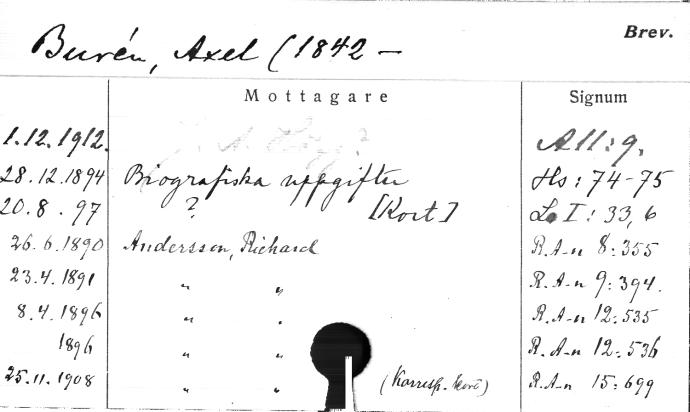 Brev.
Burén, Axel (1842 –
Mottagare Signum
1.12.1912. A 11:9.
28.12.1894 Biografiska uppgifter Hs: 74-75
20.8.97 ? [Kort] L I: 33, 6
26.6.1890 Andersson, Richard R.A-n 8:355
23.4.1891 " " R.A-n 9:394.
8.4.1896 " " R.A-n 12:535
1896 " " R.A-n 12:536
25.11.1908 " " (Korresp.kort) R.A-n 15:699